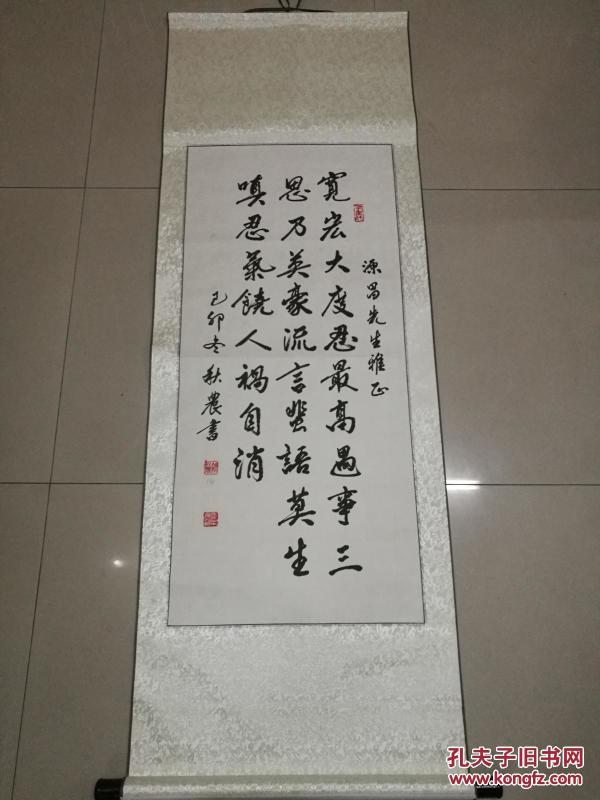 源昌先生雅正
寬宏大度忍最高遇事三
思乃英豪流言蜚語莫生
嗔忍氣饒人禍自消
己卯冬秋農書
孔夫子旧书网
www.kongfz.com